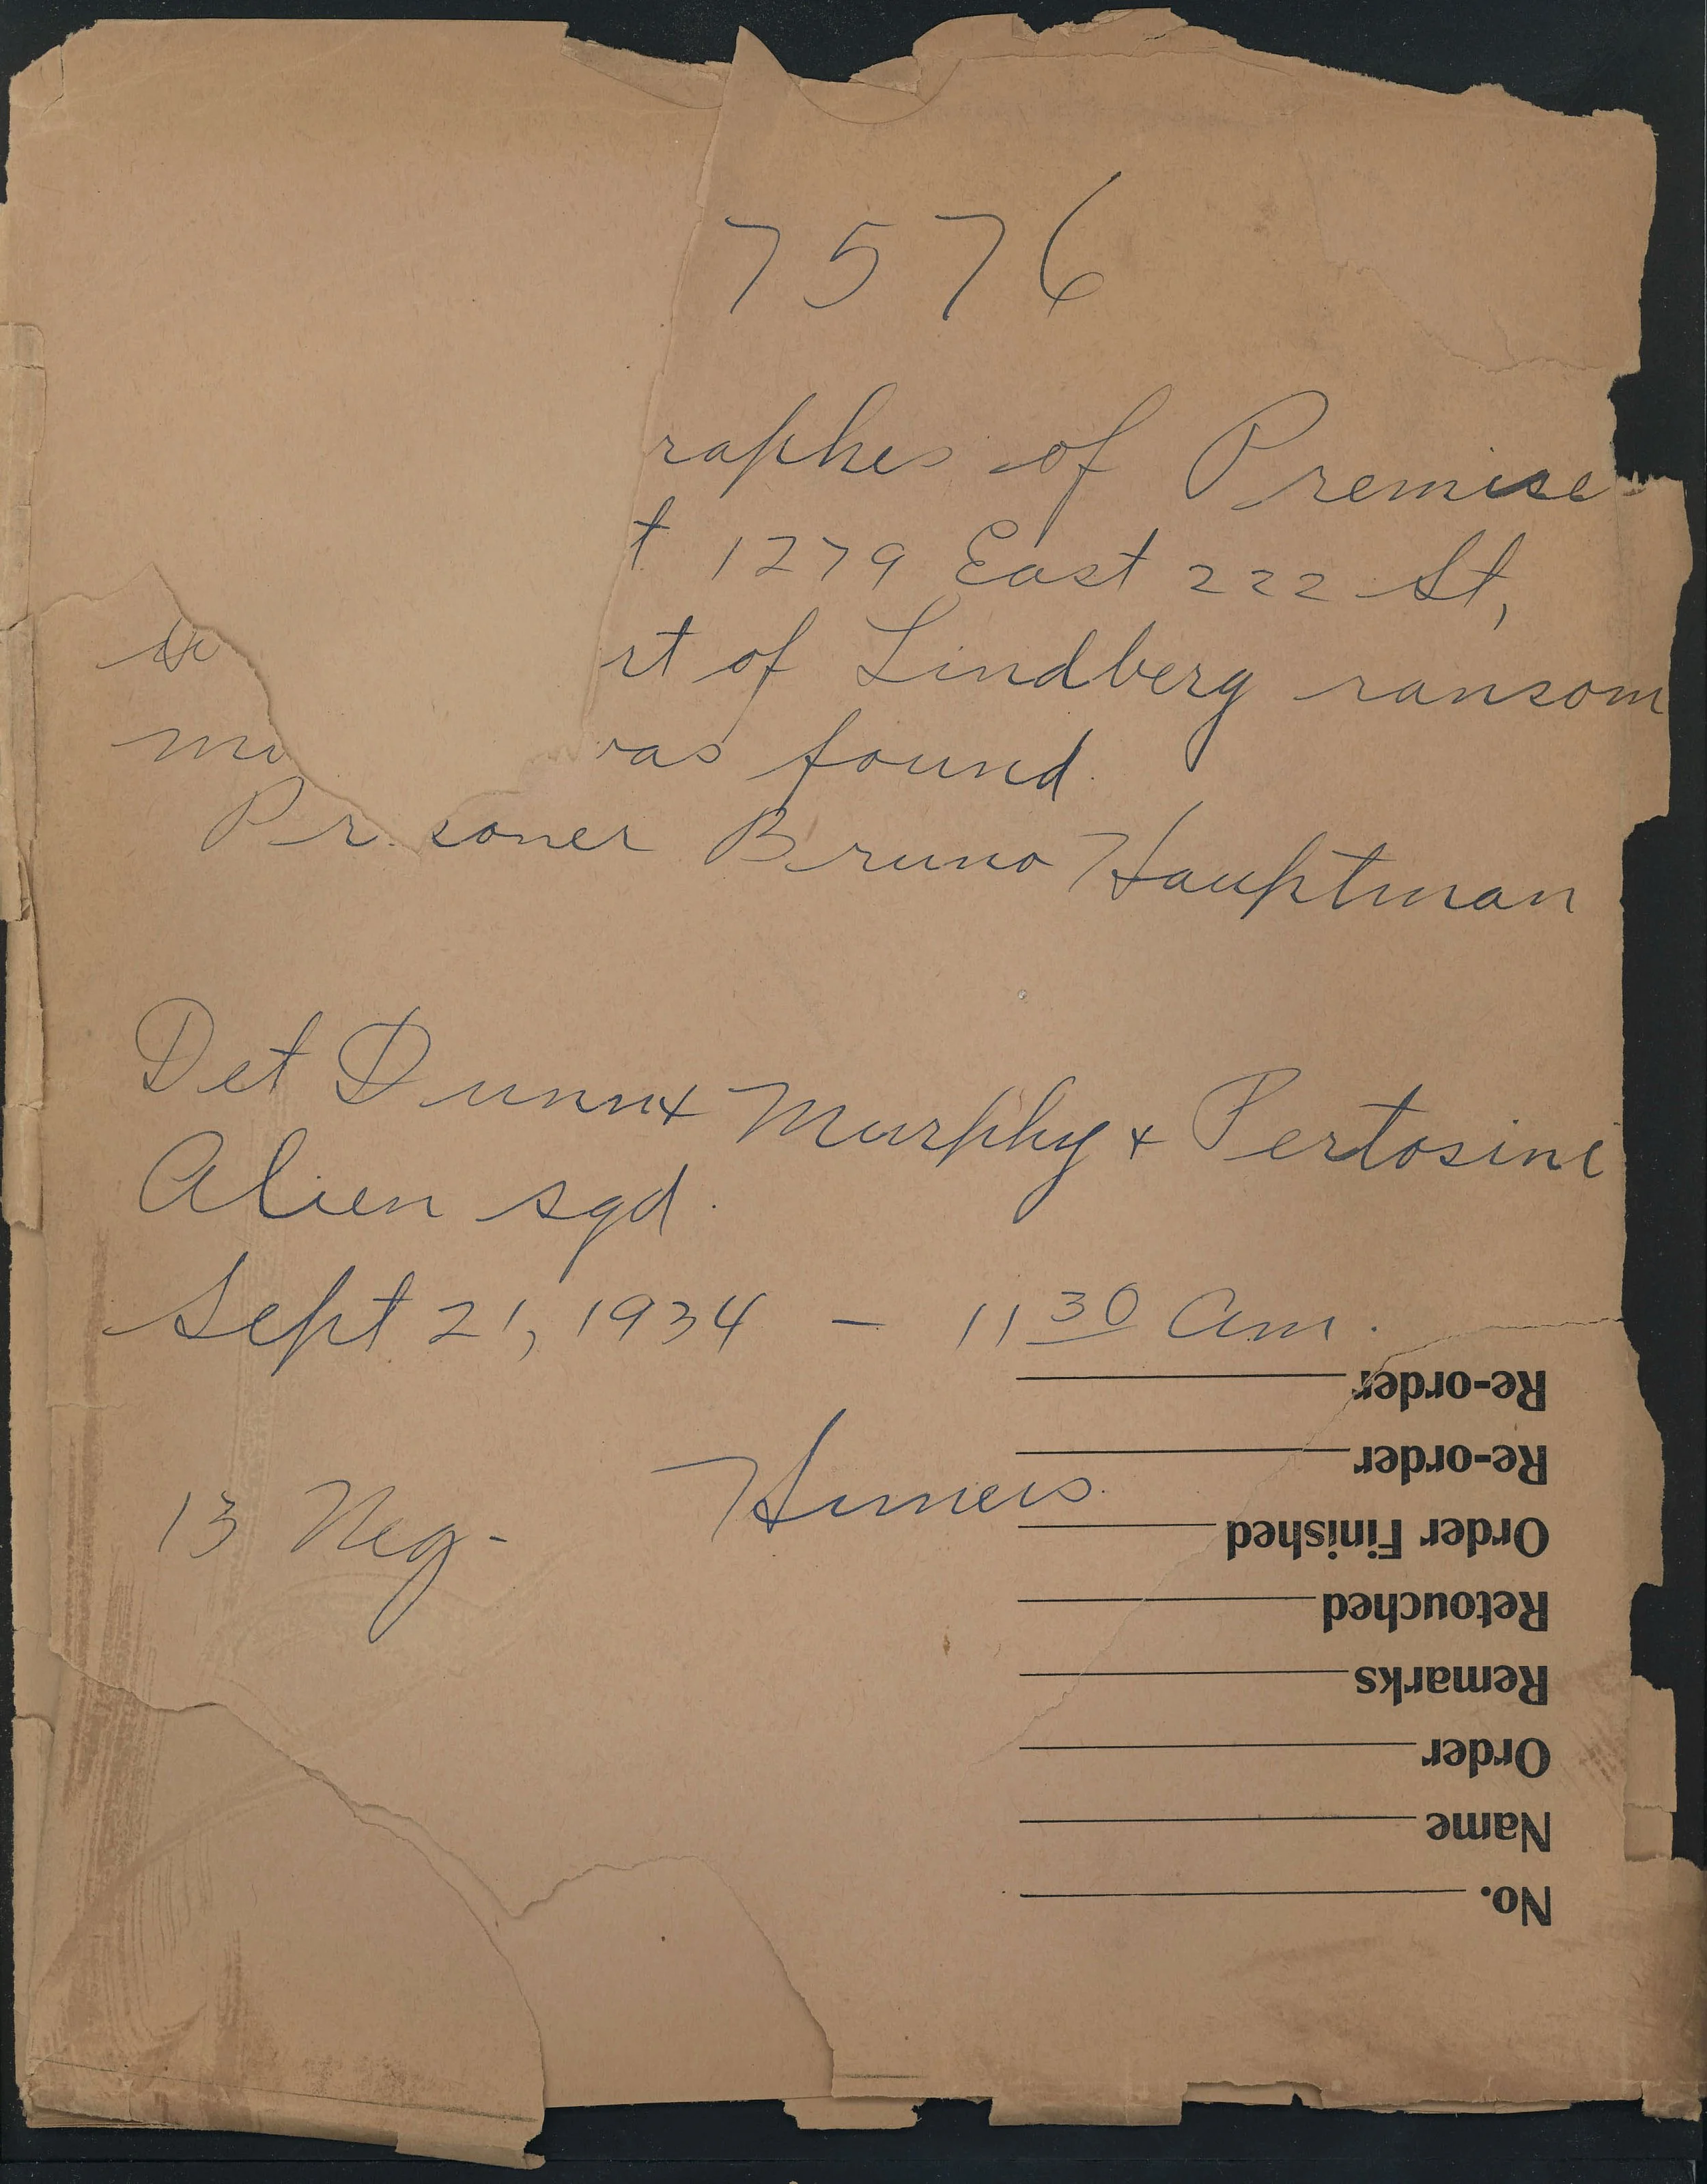 7576
raphes of Premise
t 1279 East 222 St,
rt of Lindberg ransom
was found.
Prisoner Bruno Hauptman
Det Dunn + Murphy + Pertosine
Alien sqd.
Sept 21, 1934 - 11 30 Am.
13 Neg-
Re-order
Re-order
Order Finished
Retouched
Remarks
Order
Name
No.